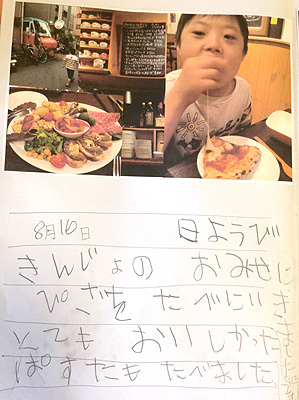 8月16日 日ようび
きんじょの おみせに
ぴざを たべにいきました
とても おいしかった
ぱすたも たべました。